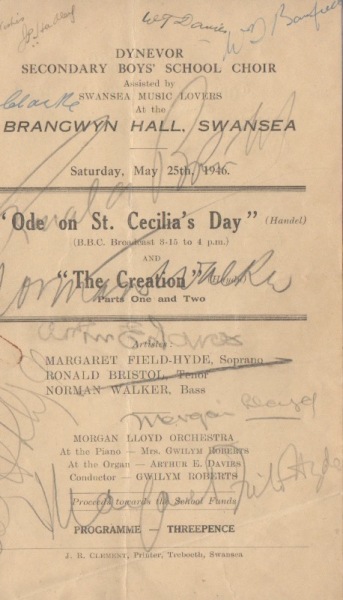 W T Davies
DYNEVOR
SECONDARY BOYS' SCHOOL CHOIR
Assisted by
SWANSEA MUSIC LOVERS
At the
BRANGWYN HALL, SWANSEA
Saturday, May 25th, 1946.
Ronald Bristol
"Ode on St. Cecilia's Day" (Handel)
(B.B.C. Broadcast 3-15 to 4 p.m.)
AND
Norman Walker
"The Creation" (Haydn)
Parts One and Two
Arthur E Davies
Artistes:
MARGARET FIELD-HYDE, Soprano
RONALD BRISTOL, Tenor
NORMAN WALKER, Bass
Morgan Lloyd
MORGAN LLOYD ORCHESTRA
At the Piano - Mrs. GWILYM ROBERTS
At the Organ - ARTHUR E. DAVIES
Conductor - GWILYM ROBERTS
Margaret Field-Hyde
Proceeds towards the School Funds
PROGRAMME - THREEPENCE
J. R. CLEMENT, Printer, Treboeth, Swansea